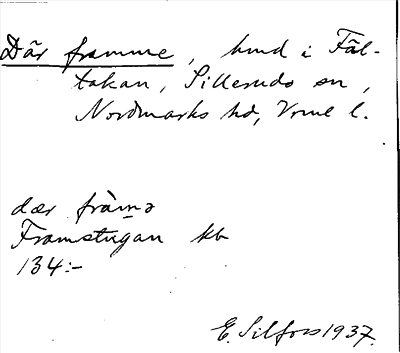 Där framme, hmd i Fäl-
takan, Silleruds sn,
Nordmarks hd, Vrml l.
dær fràm̲ə
Framstugan kb
134:-
E. Silfors 1937.